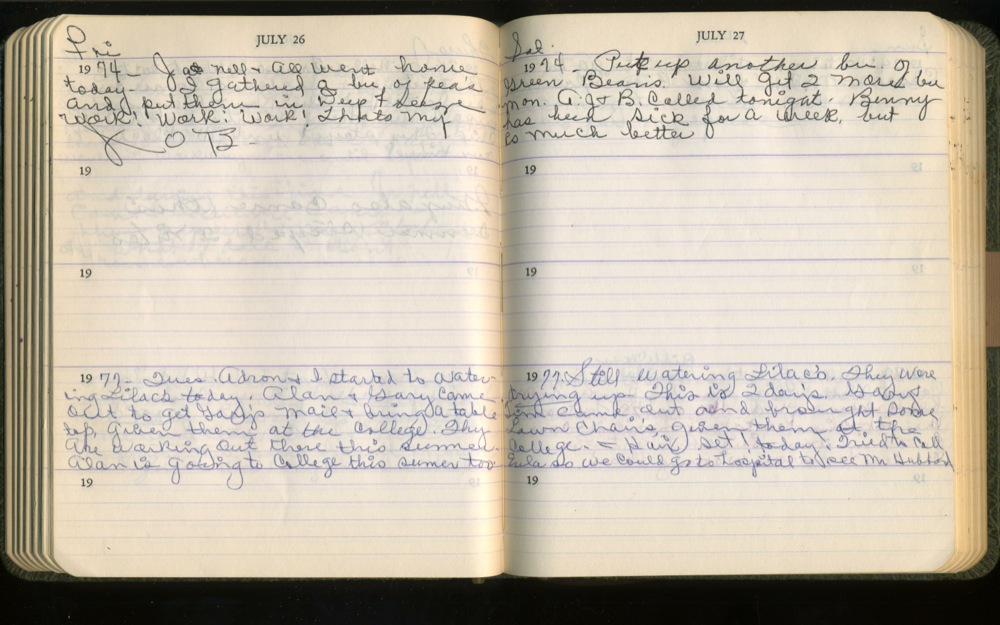 JULY 26
Fri
1974 - Jo Nell & All went home
today. I gathered 2 bu. of peas
and put them in Deep freeze
Work! Work! Work! Thats my
J O B.
19
19
1977 - Tues. Adron & I started to water-
ing Lilacs today. Alan & Gary came
out to get Gary's mail & bring a table
top, given them at the College. They
are working out there this summer
Alan is going to College this sumer too
19
JULY 27
Sat.
1974 Put up another bu. of
Green Beans. Will get 2 more bu
Mon. A.J. & B. Called tonight. Benny
has been sick for a week, but
is much better
19
19
1977. Still watering Lilacs. They were
drying up. This is 2 days. Gary &
came out and brought some
Lawn Chairs given them at the
College. & set, today. Tried to Call
so we could go to hospital to see Mr Hubbard
19